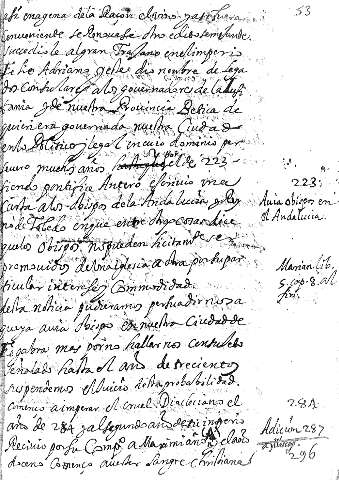 53
en magena de la Razon
inconveniente se
sucedió el gran Trajano en el imperio
Adriano, y este dio nombre de Lega
dos Consulares a los governadores de la Lusi
tania y de nuestra Provincia Betica de
quien era governada nuestra Ciudad
en lo Politico y legal en cuio dominio per
severo muchos años el de 223
siendo pontifice Antero escrivio una
Carta a los obispos de la Andalucia y Rey
no de Toledo en que entre otras cosas dice
que los Obispos no pueden licitamte ser
promovidos de una iglesia a otra por su par
ticular interes y Commodidad.
desta noticia pudieramos persuadirnos a
que ya avia obispo en nuestra Ciudad de
Egabra mas por no hallarnos con
señalado hasta el año de trecientos
suspendemos el juicio desta probabilidad.
Comenso a imperar el cruel Diocleciano el
año de 284 y al segundo año de su imperio
Recivio por su Compo a Maximiano
Començo a verter Sangre Christiana
223.
Avia obispos en
el Andalucia.
Marian. lib.
5. cap. 8. al
fin.
284
Adicion 287
296